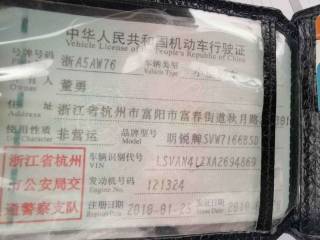 中华人民共和国机动车行驶证
Vehicle License of the People's Republic of China
号牌号码 浙A5AW76 车辆类型
Vehicle Type
所有人 董勇
住址 浙江省杭州市富阳市富春街道秋月路
使用性质 非营运 品牌型号 明锐牌SVW7166BSD
浙江省杭州 车辆识别代号 LSVAN4LZXA2694869
VIN
市公安局交 发动机号码 121324
Engine No.
通警察支队 注册日期 2010-01-25 发证日期